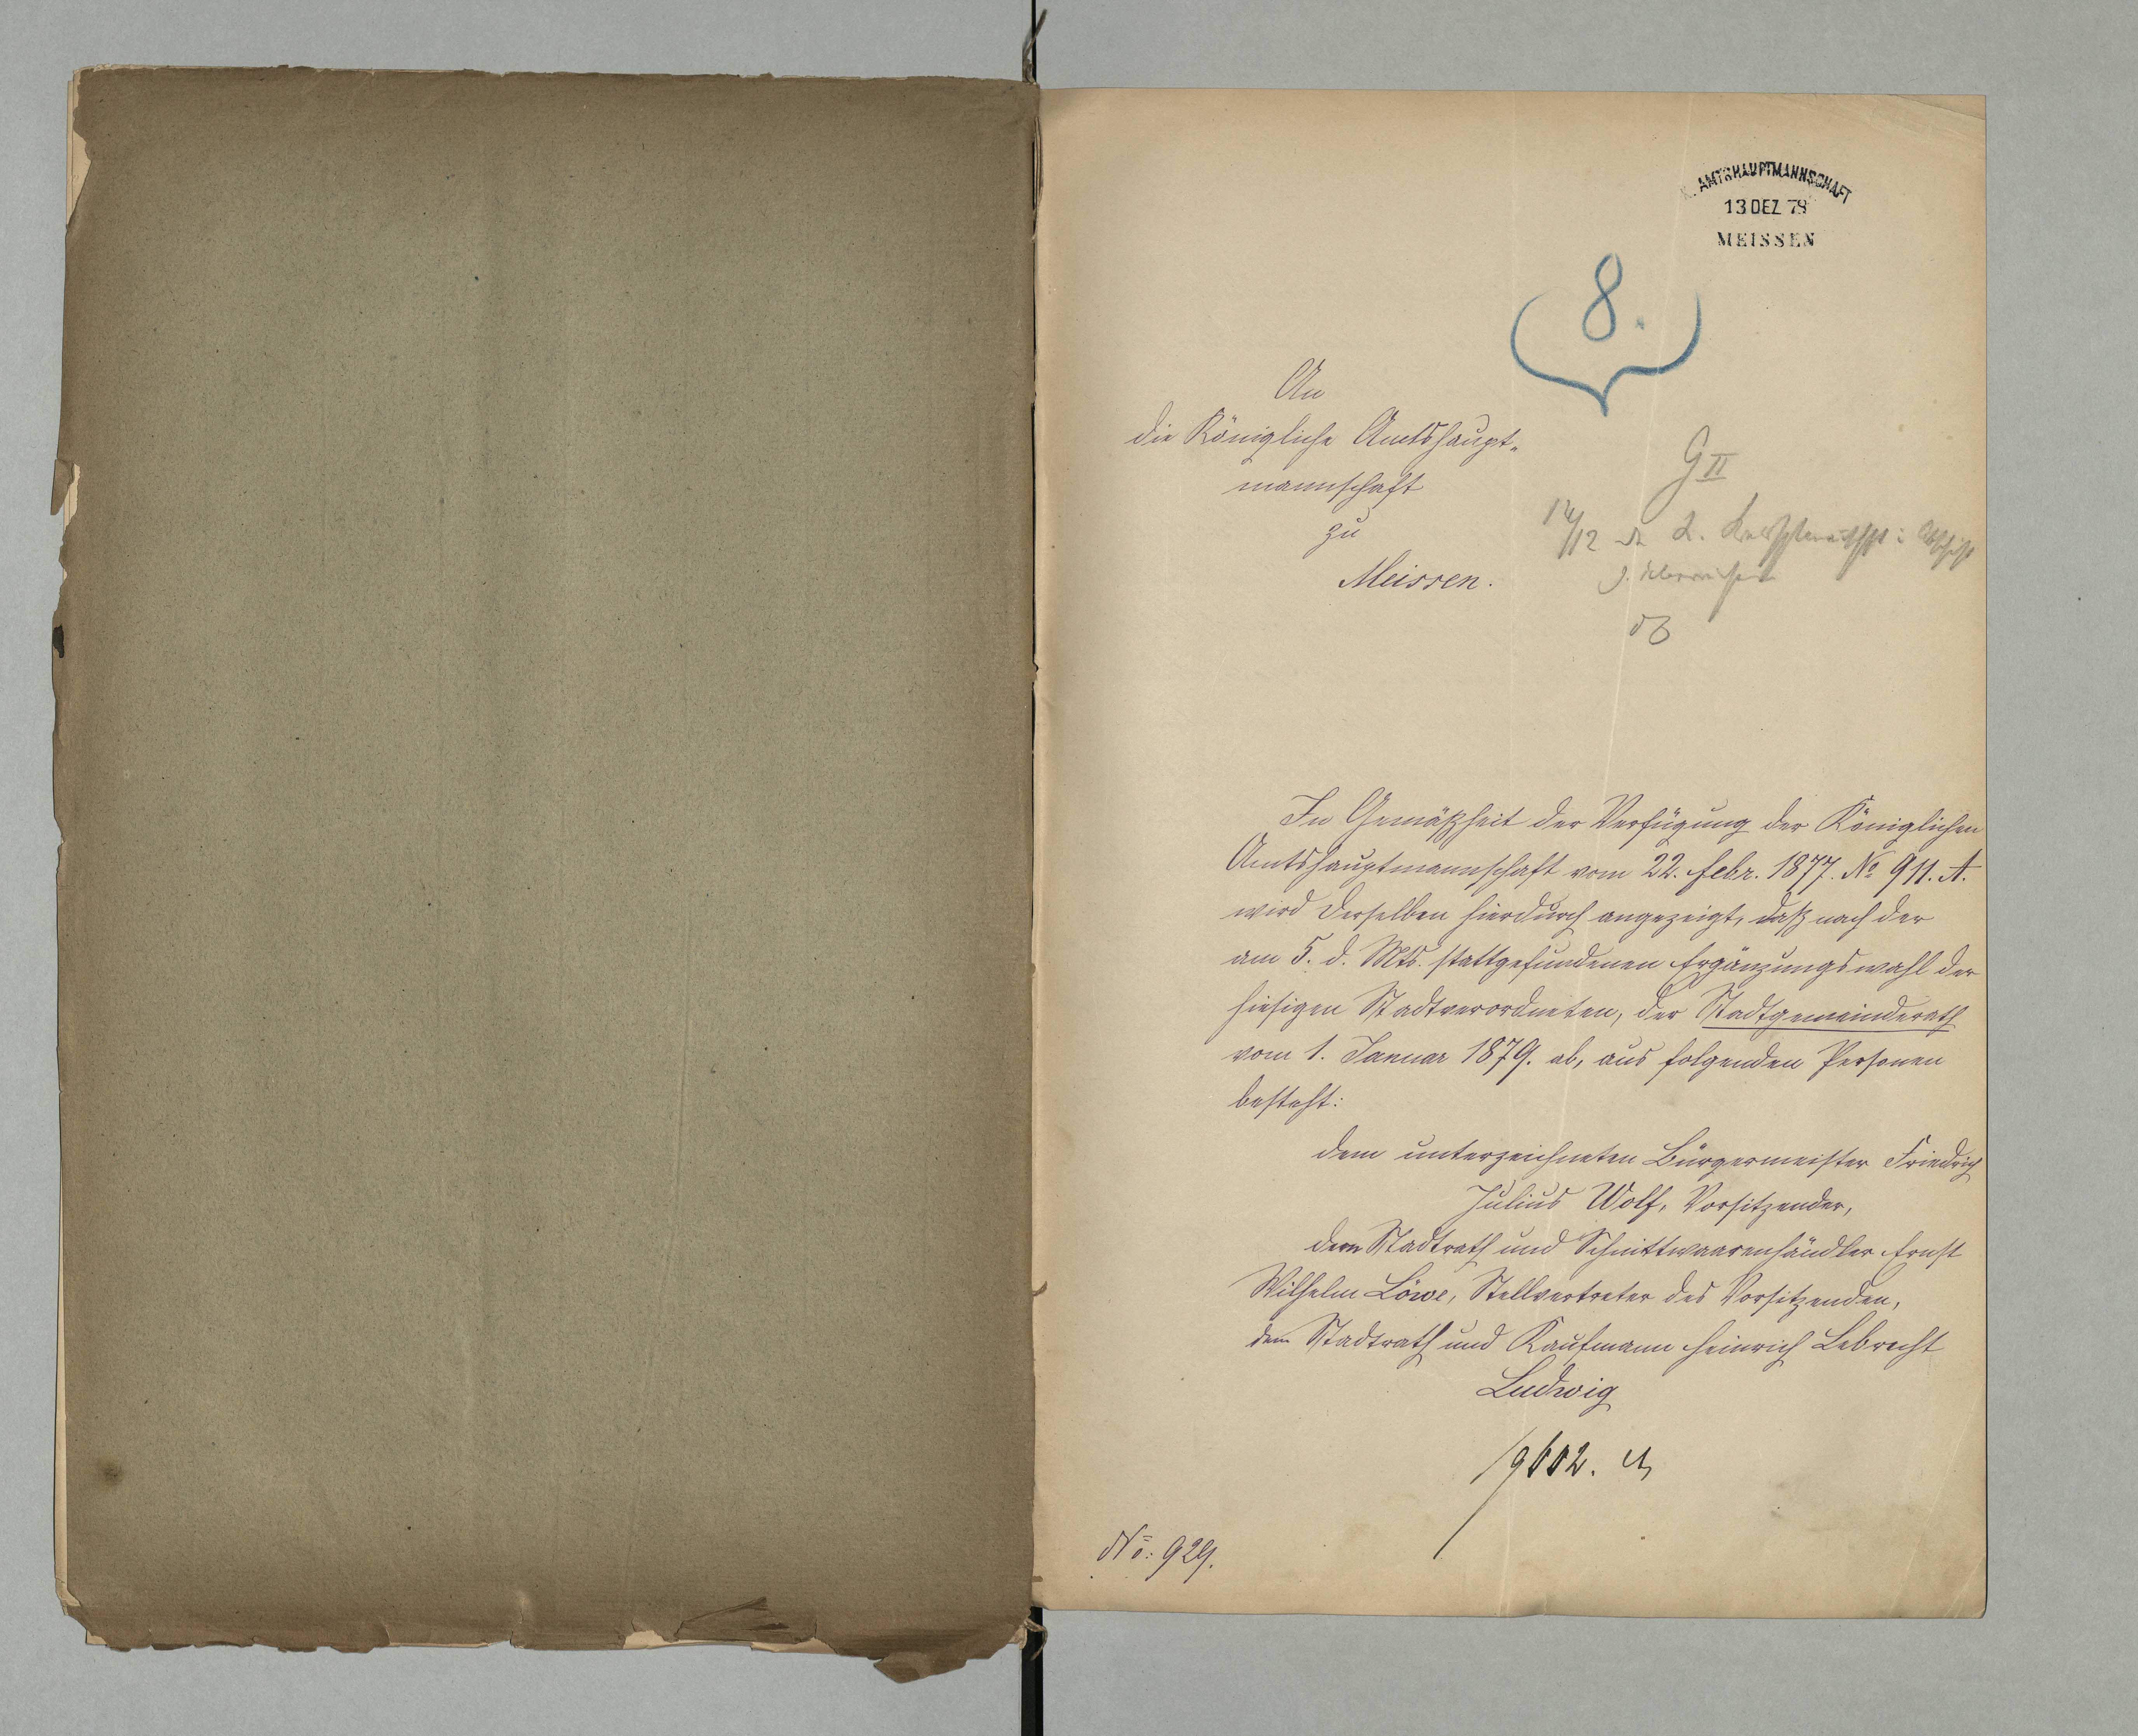 K. AMTSHAUPTMANNSCHAFT
13 DEZ 78
MEISSEN
8.
An
die Königliche Amtshaupt-
mannschaft
zu
Meissen.
G II
14/12
In Gemäßheit der Verfügung der Königlichen
Amtshauptmannschaft vom 22. Febr. 1877. No 911. A.
wird derselben hierdurch angezeigt, daß nach der
am 5. d. Mts. stattgefundenen Ergänzungswahl der
hiesigen Stadtverordneten, der Stadtgemeinderath
vom 1. Januar 1879. ab, aus folgenden Personen
besteht:
dem unterzeichneten Bürgermeister Friedrich
Julius Wolf, Vorsitzender,
dem Stadtrath und Schnittwaarenhändler Ernst
Wilhelm Löwe, Stellvertreter des Vorsitzenden,
dem Stadtrath und Kaufmann Heinrich Lebrecht
Ludwig
19602. A
No: 929.